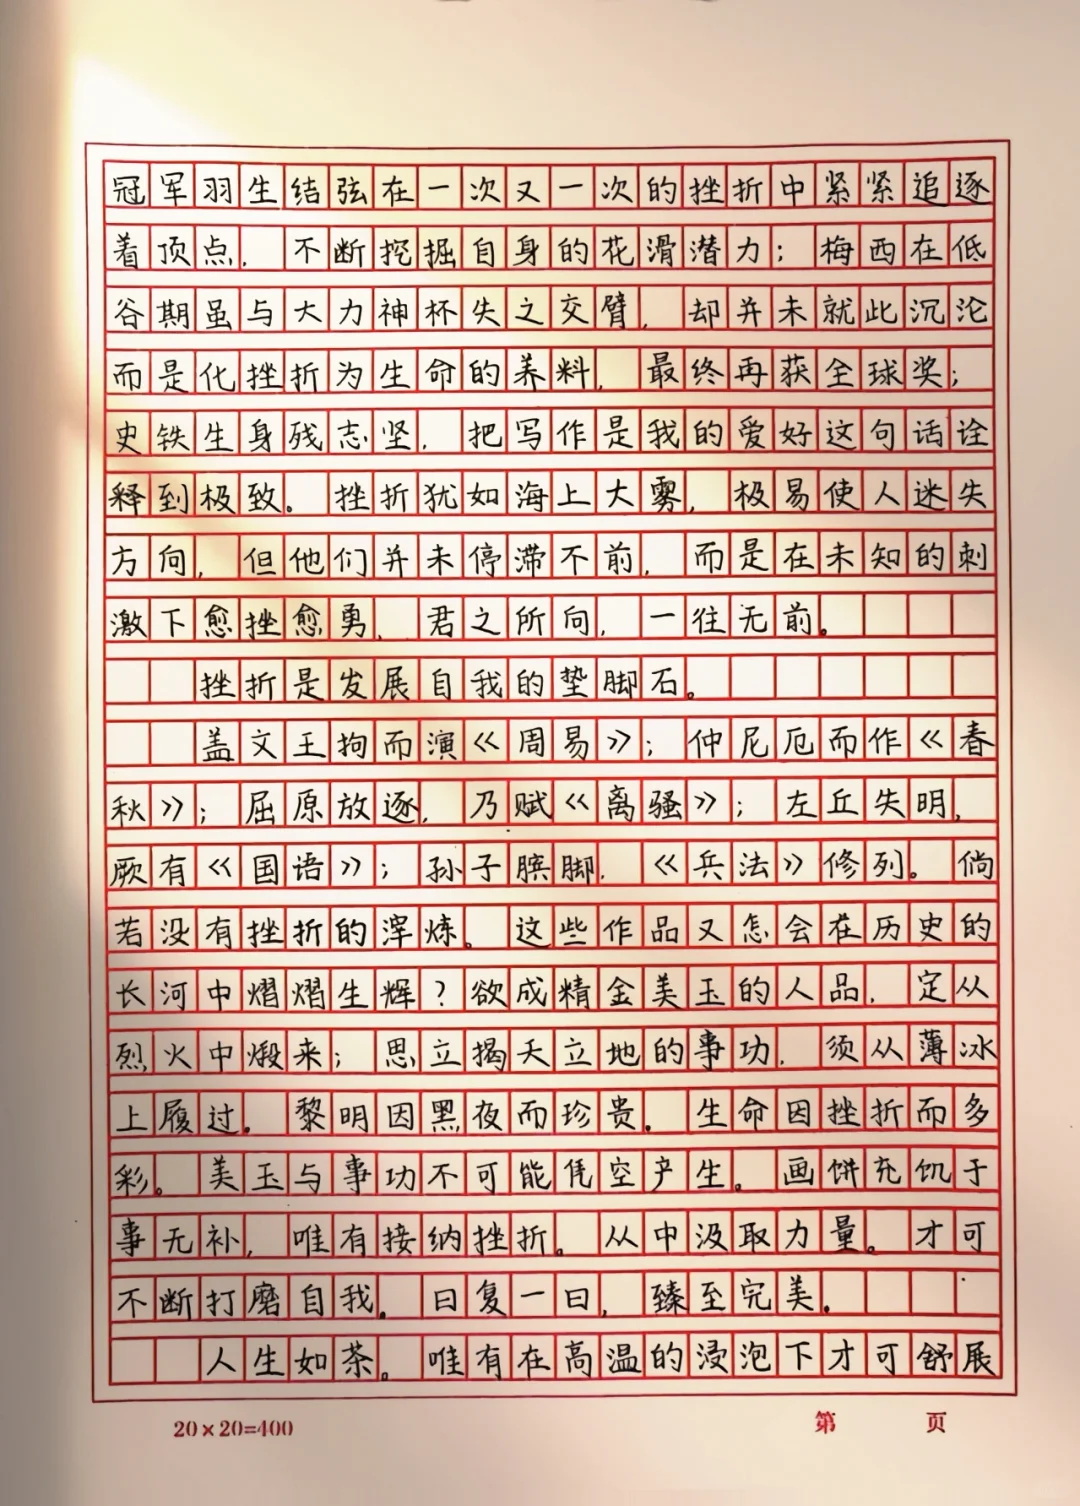 冠军羽生结弦在一次又一次的挫折中紧紧追逐
着顶点，不断挖掘自身的花滑潜力；梅西在低
谷期虽与大力神杯失之交臂，却并未就此沉沦
而是化挫折为生命的养料，最终再获全球奖；
史铁生身残志坚，把写作是我的爱好这句话诠
释到极致。挫折犹如海上大雾，极易使人迷失
方向，但他们并未停滞不前，而是在未知的刺
激下愈挫愈勇，君之所向，一往无前。
挫折是发展自我的垫脚石。
盖文王拘而演《周易》；仲尼厄而作《春
秋》；屈原放逐，乃赋《离骚》；左丘失明，
厥有《国语》；孙子膑脚，《兵法》修列。倘
若没有挫折的淬炼。这些作品又怎会在历史的
长河中熠熠生辉？欲成精金美玉的人品，定从
烈火中煅来；思立揭天立地的事功，须从薄冰
上履过。黎明因黑夜而珍贵。生命因挫折而多
彩。美玉与事功不可能凭空产生。画饼充饥于
事无补，唯有接纳挫折。从中汲取力量。才可
不断打磨自我。日复一日，臻至完美。
人生如茶。唯有在高温的浸泡下才可舒展
20×20=400
第 页